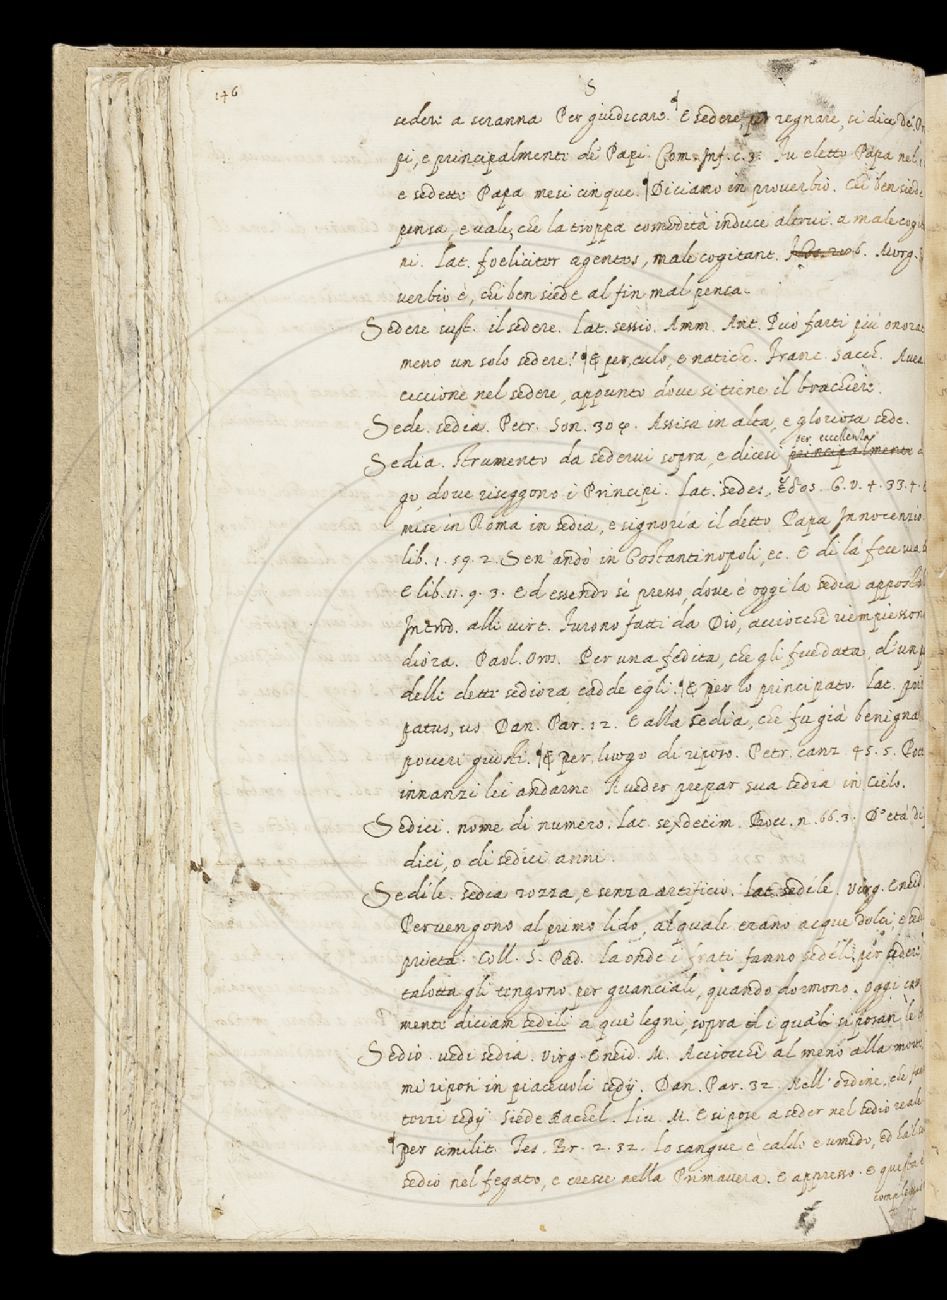 146
S
sedere a scranna Per giudicare. E sedere per regnare, si dice de' Pr
pi, e principalmente de' Papi. Com. Inf. c. 3. Fu eletto Papa nel
e sedette Papa mesi cinque. Diciamo in proverbio. Chi ben siede
pensa, e vale, che la troppa comodità induce altrui a male cogi
ri. Lat. foeliciter agentes, male cogitant. Morg.
verbio è, chi ben siede al fin mal pensa.
Sedere sust. il sedere. Lat. sessio. Amm. Ant. Può farti più onorat
meno un solo sedere! E per, culo, e natiche. Franc. Sacch. Avea
ciccione nel sedere, appunto dove si tiene il brachiere.
Sede. sedia. Petr. Son. 309. Assisa in alta, e gloriosa sede.
per eccellenza
Sedia. Strumento da sedervi sopra, e dicesi principalmente
go, dove riseggono i Principi. Lat. sedes, ἕδος. G. V. 4. 33. 4.
mise in Roma in sedia, e signoria il detto Papa Innocenzio
lib. 1. 59. 2. Sen' andò in Costantinopoli, ec. E di là fece
E lib. 11. 9. 3. Ed essendo sì presso, dove è oggi la sedia appost
Introd. alle virt. Furono fatti da Dio, acciocchè riempiesson
diora. Paol. Oros. Per una fedita, che gli fue data, d'un p
delle dette sediora cadde egli. E per lo principato. Lat. prin
patus, us Dan. Par. 12. E alla sedia, che fu già benigna
poveri giusti. E per, luogo di riposo. Petr. canz. 45. 5.
innanzi lei andarne A veder prepar sua sedia in Cielo.
Sedici. nome di numero. Lat. sexdecim. Bocc. n. 66. 3. D'età di
dici, o di sedici anni.
Sedile. sedia rozza, e senza artificio. Lat. sedile. Virg. Eneid
Pervengono al primo lido, al quale erano acque dolci, e sed
prieta. Coll. S. Pad. la onde i frati fanno sedili per sedere
talotta gli tengono per guanciali, quando dormono. Oggi
mente diciam sedili a que' legni, sopra i quali si posan le
Sedio. vedi sedia. Virg. Eneid. M. Acciocchè al meno alla morte
mi riposi in piacevoli sedij. Dan. Par. 32. Nell' ordine, che
terzi sedij Siede Rachel. Liv. M. E si pose a seder nel sedio reale
per similit. Tes. Br. 2. 32. Lo sangue è caldo e umido, ed ha'l suo
sedio nel fegato, e cresce nella Primavera. E appresso. E questa
complession